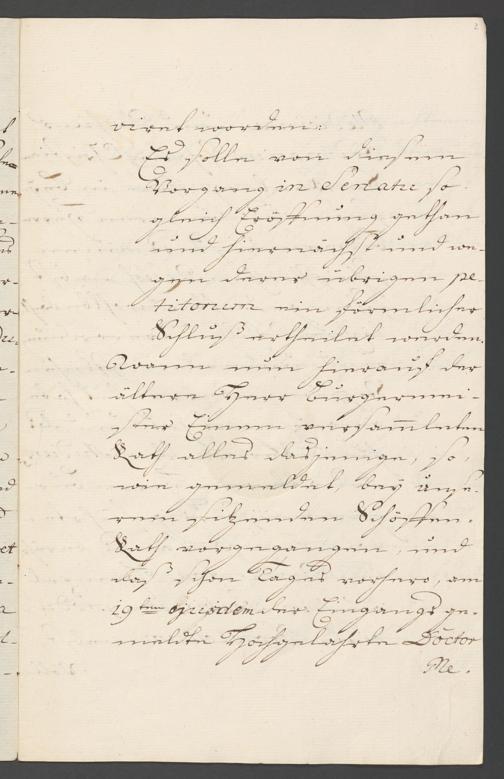 2
viret worden:
Es solle von diesem
Vorgang in Senatu so
gleich Eröffnung gethan
und hiernächst und we-
gen derer übrigen pe-
titorum ein förmlicher
Schluß ertheilet werden.
Wann nun hierauf der
ältere Herr Burgermei-
ster Einem versam̅leten
Rath alles dasjenige, so,
wie gemeldet, bey unse-
rem sitzenden Schöffen-
Rath vorgegangen, und
daß schon Tages vorhero, am
19ten ejusdem der Eingangs ge-
meldte Hochgelahrte Doctor
Me-